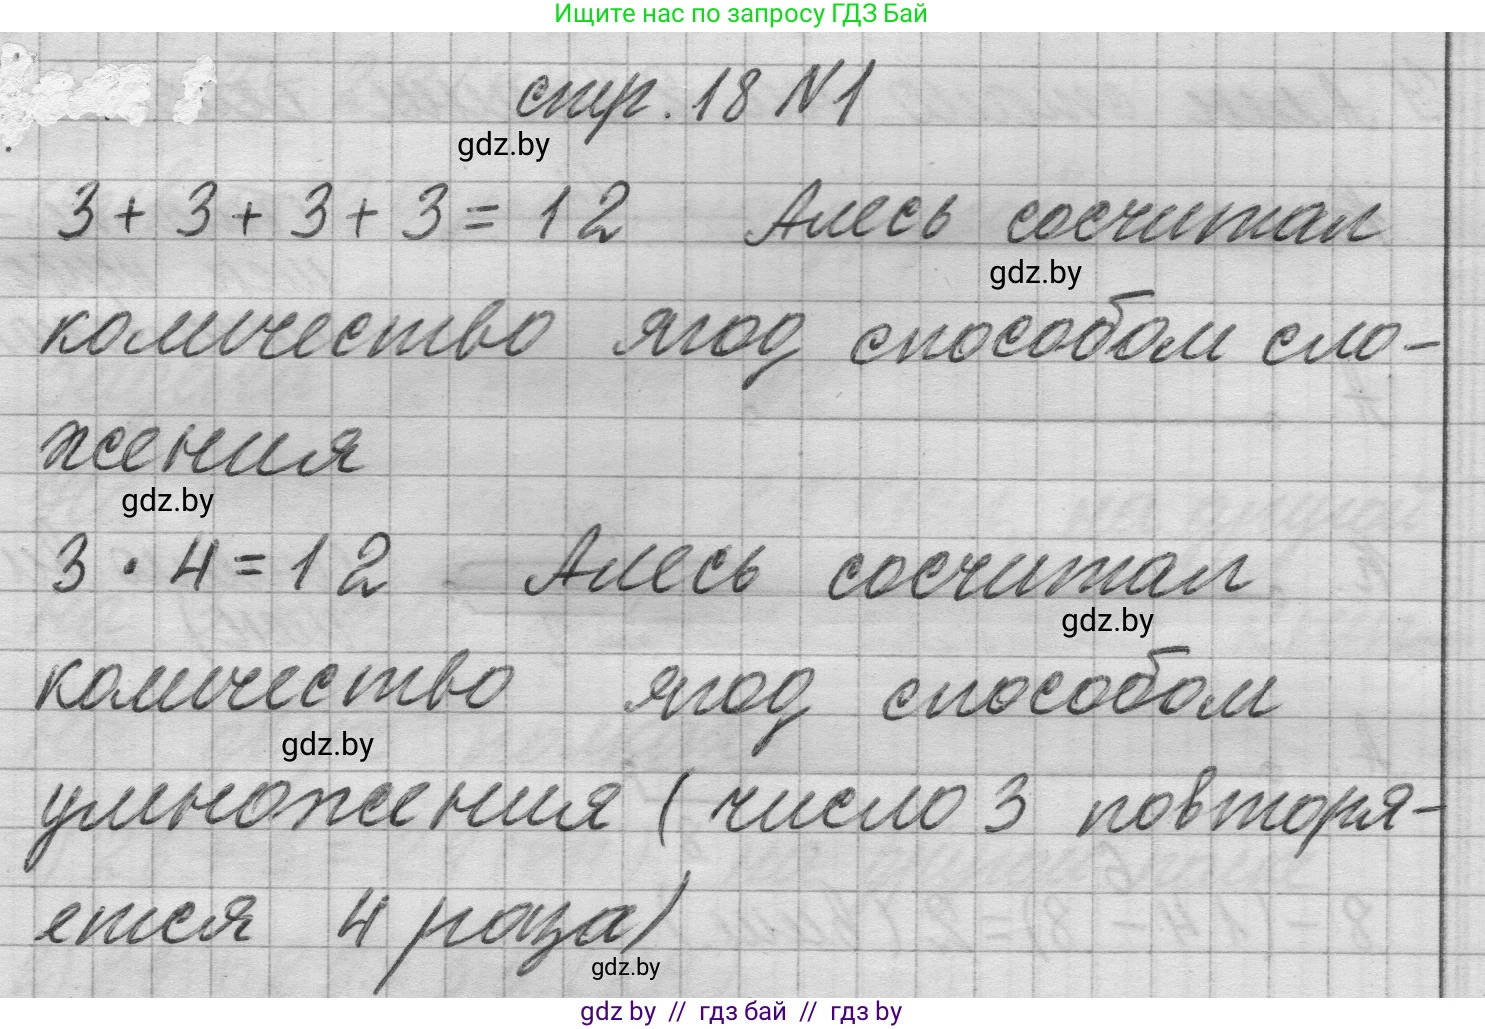 Ищите нас по запросу ГДЗ Бай
стр. 18 №1
gdz.by
3 + 3 + 3 + 3 = 12 Алесь сосчитал
gdz.by
количество ягод способом сло-
жения
gdz.by
3 · 4 = 12 Алесь сосчитал
gdz.by
количество ягод способом
gdz.by
умножения (число 3 повторя-
ется 4 раза)
gdz.by
gdz by // гдз бай // гдз by